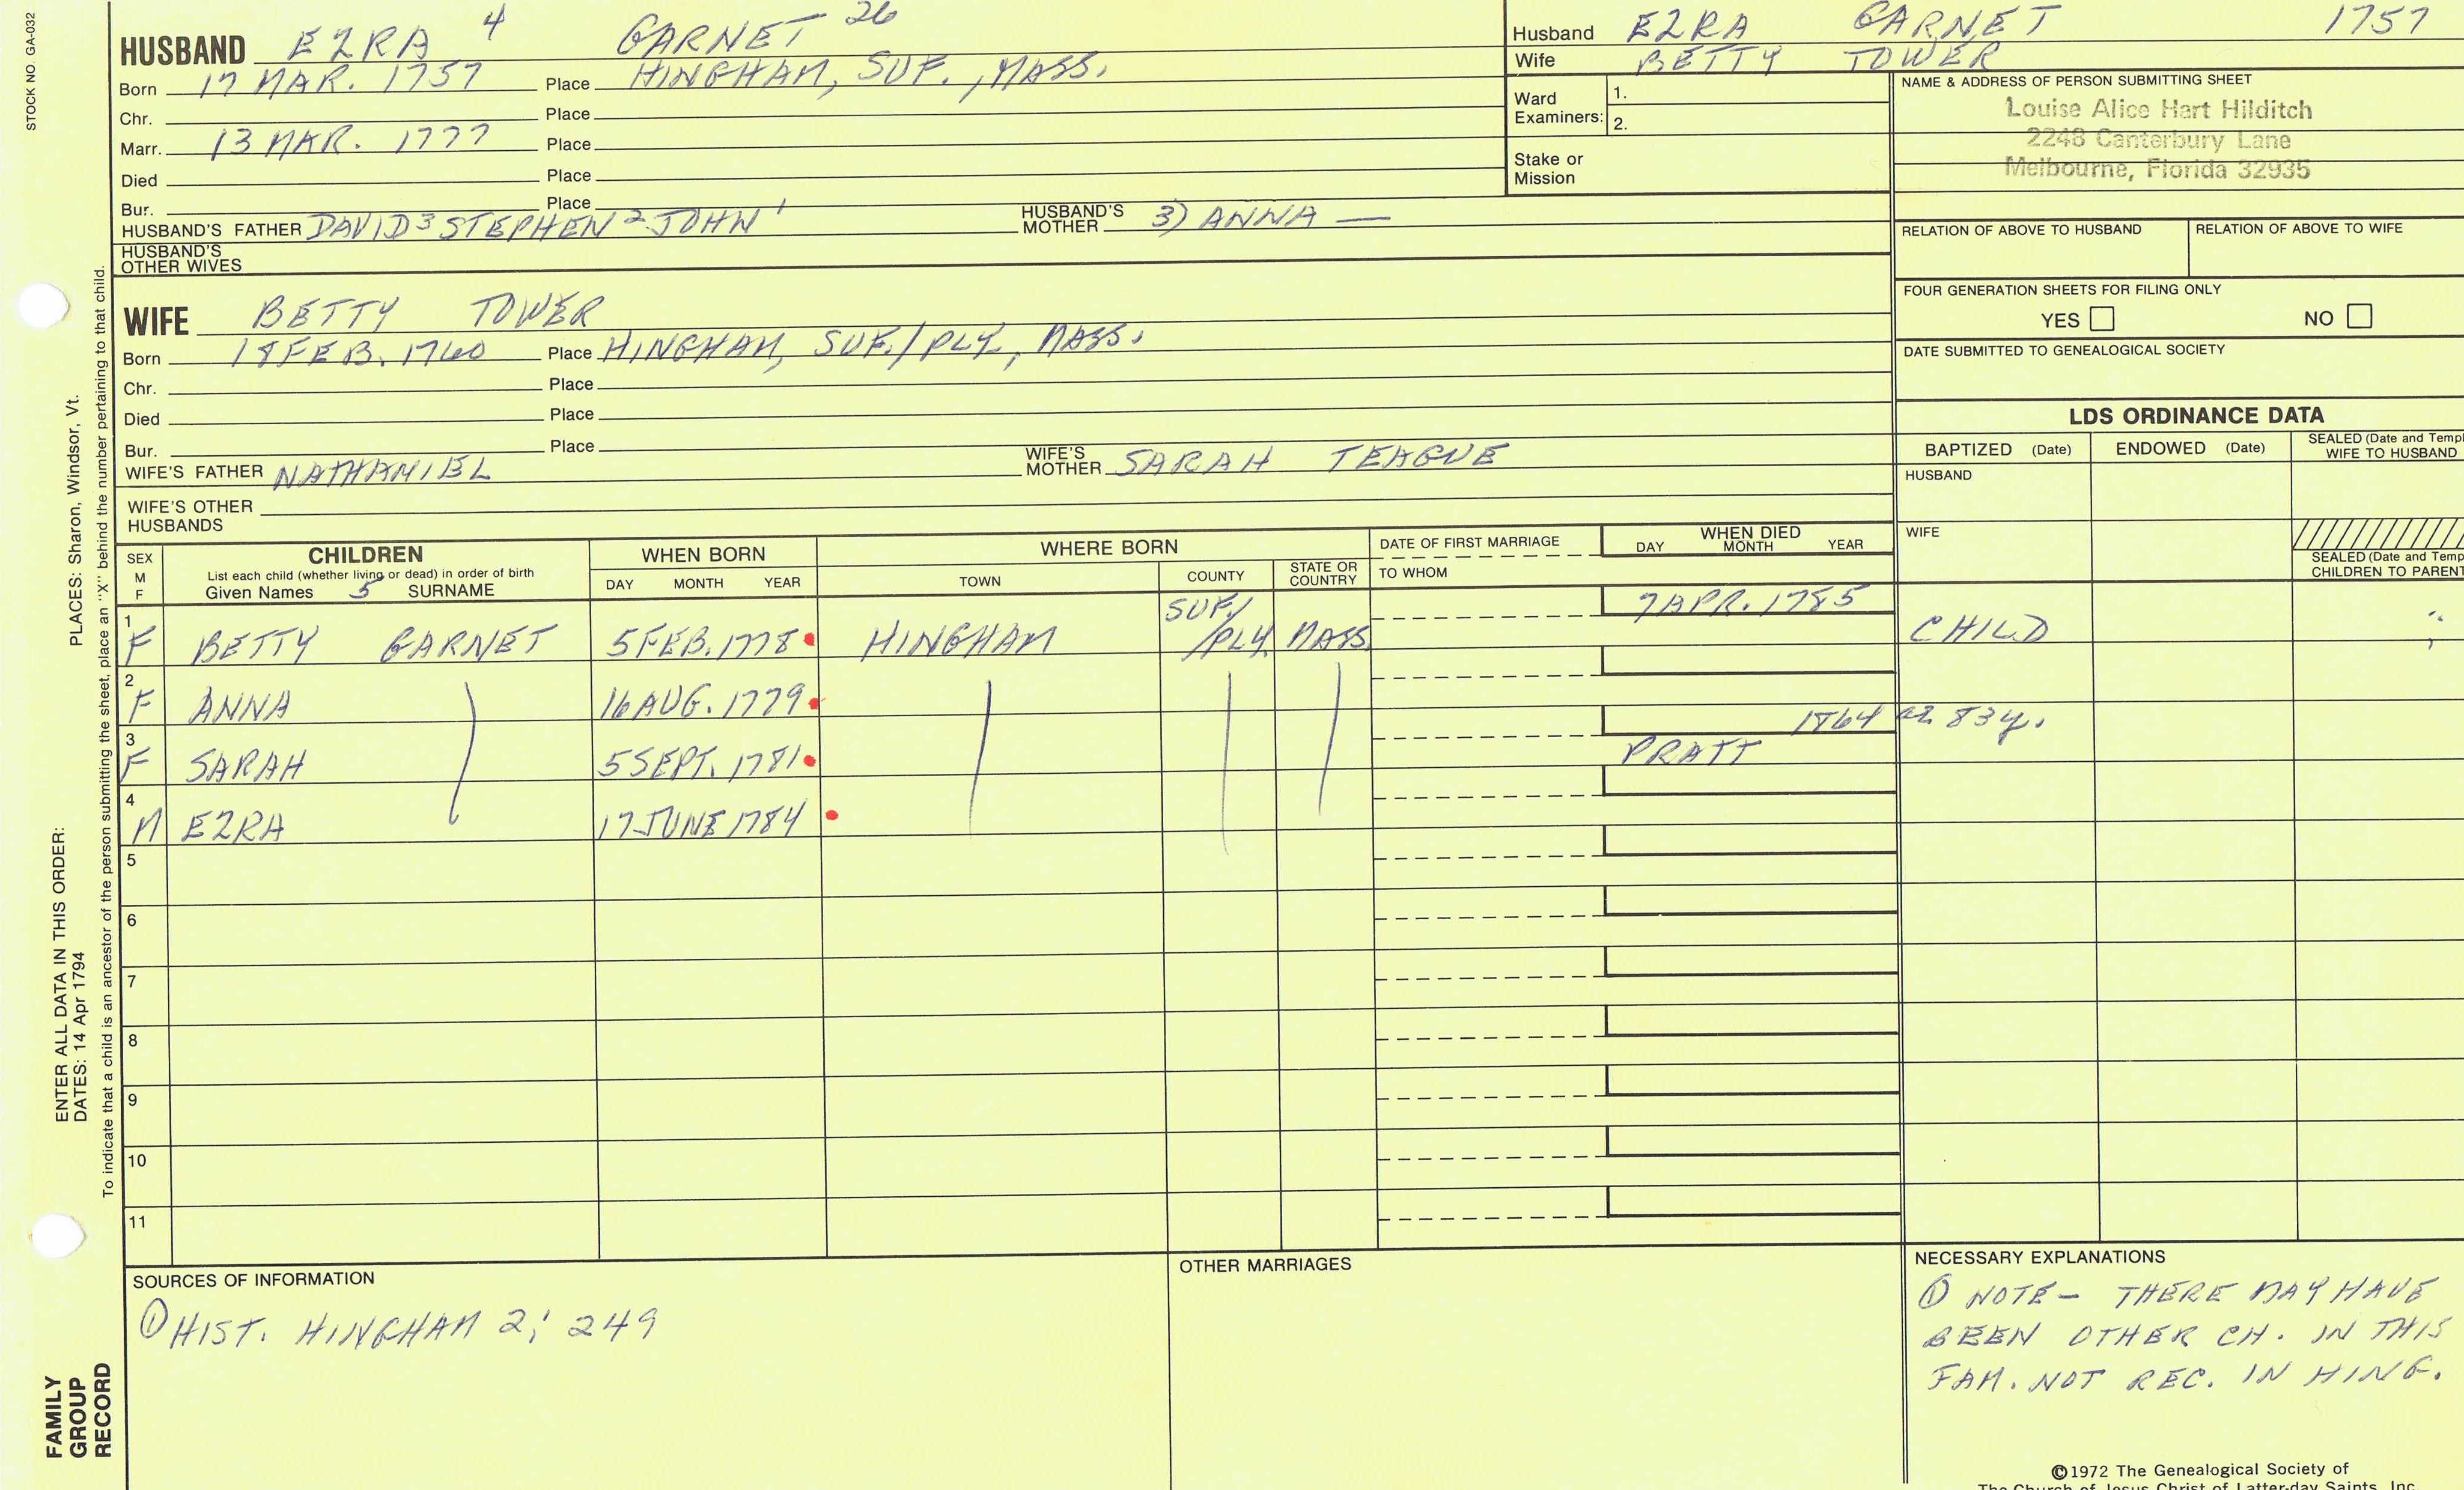 STOCK NO. GA-032
HUSBAND EZRA 4 GARNET 26
Born 17 MAR. 1757 Place HINGHAM, SUF., MASS.
Chr. Place
Marr. 13 MAR. 1777 Place
Died Place
Bur. Place
HUSBAND'S FATHER DAVID 3 STEPHEN 2 JOHN 1 HUSBAND'S MOTHER 3) ANNA —
HUSBAND'S OTHER WIVES
WIFE BETTY TOWER
Born 18 FEB. 1760 Place HINGHAM, SUF./PLY, MASS.
Chr. Place
Died Place
Bur. Place
WIFE'S FATHER NATHANIEL WIFE'S MOTHER SARAH TEAGUE
WIFE'S OTHER HUSBANDS
Husband EZRA GARNET 1757
Wife BETTY TOWER
Ward Examiners: 1.
2.
Stake or Mission
NAME & ADDRESS OF PERSON SUBMITTING SHEET
Louise Alice Hart Hilditch
2248 Canterbury Lane
Melbourne, Florida 32935
RELATION OF ABOVE TO HUSBAND RELATION OF ABOVE TO WIFE
FOUR GENERATION SHEETS FOR FILING ONLY
YES NO
DATE SUBMITTED TO GENEALOGICAL SOCIETY
LDS ORDINANCE DATA
BAPTIZED (Date) ENDOWED (Date) SEALED (Date and Templ
WIFE TO HUSBAND
HUSBAND
WIFE
SEALED (Date and Temp
CHILDREN TO PARENT
SEX M F
CHILDREN
List each child (whether living or dead) in order of birth
Given Names 5 SURNAME
WHEN BORN
DAY MONTH YEAR
WHERE BORN
TOWN COUNTY STATE OR COUNTRY
DATE OF FIRST MARRIAGE
TO WHOM
WHEN DIED
DAY MONTH YEAR
1 F BETTY GARNET 5 FEB. 1778 HINGHAM SUF./ /PLY MASS. 7 APR. 1785 CHILD
2 F ANNA 16 AUG. 1779
3 F SARAH 5 SEPT. 1781 PRATT 1864 ae 83y.
4 M EZRA 17 JUNE 1784
5
6
7
8
9
10
11
SOURCES OF INFORMATION
① HIST. HINGHAM 2; 249
OTHER MARRIAGES
NECESSARY EXPLANATIONS
① NOTE - THERE MAY HAVE
BEEN OTHER CH. IN THIS
FAM. NOT REC. IN HING.
©1972 The Genealogical Society of
The Church of Jesus Christ of Latter-day Saints, Inc.
PLACES: Sharon, Windsor, Vt.
ENTER ALL DATA IN THIS ORDER:
DATES: 14 Apr 1794
To indicate that a child is an ancestor of the person submitting the sheet, place an "X" behind the number pertaining to that child.
FAMILY
GROUP
RECORD